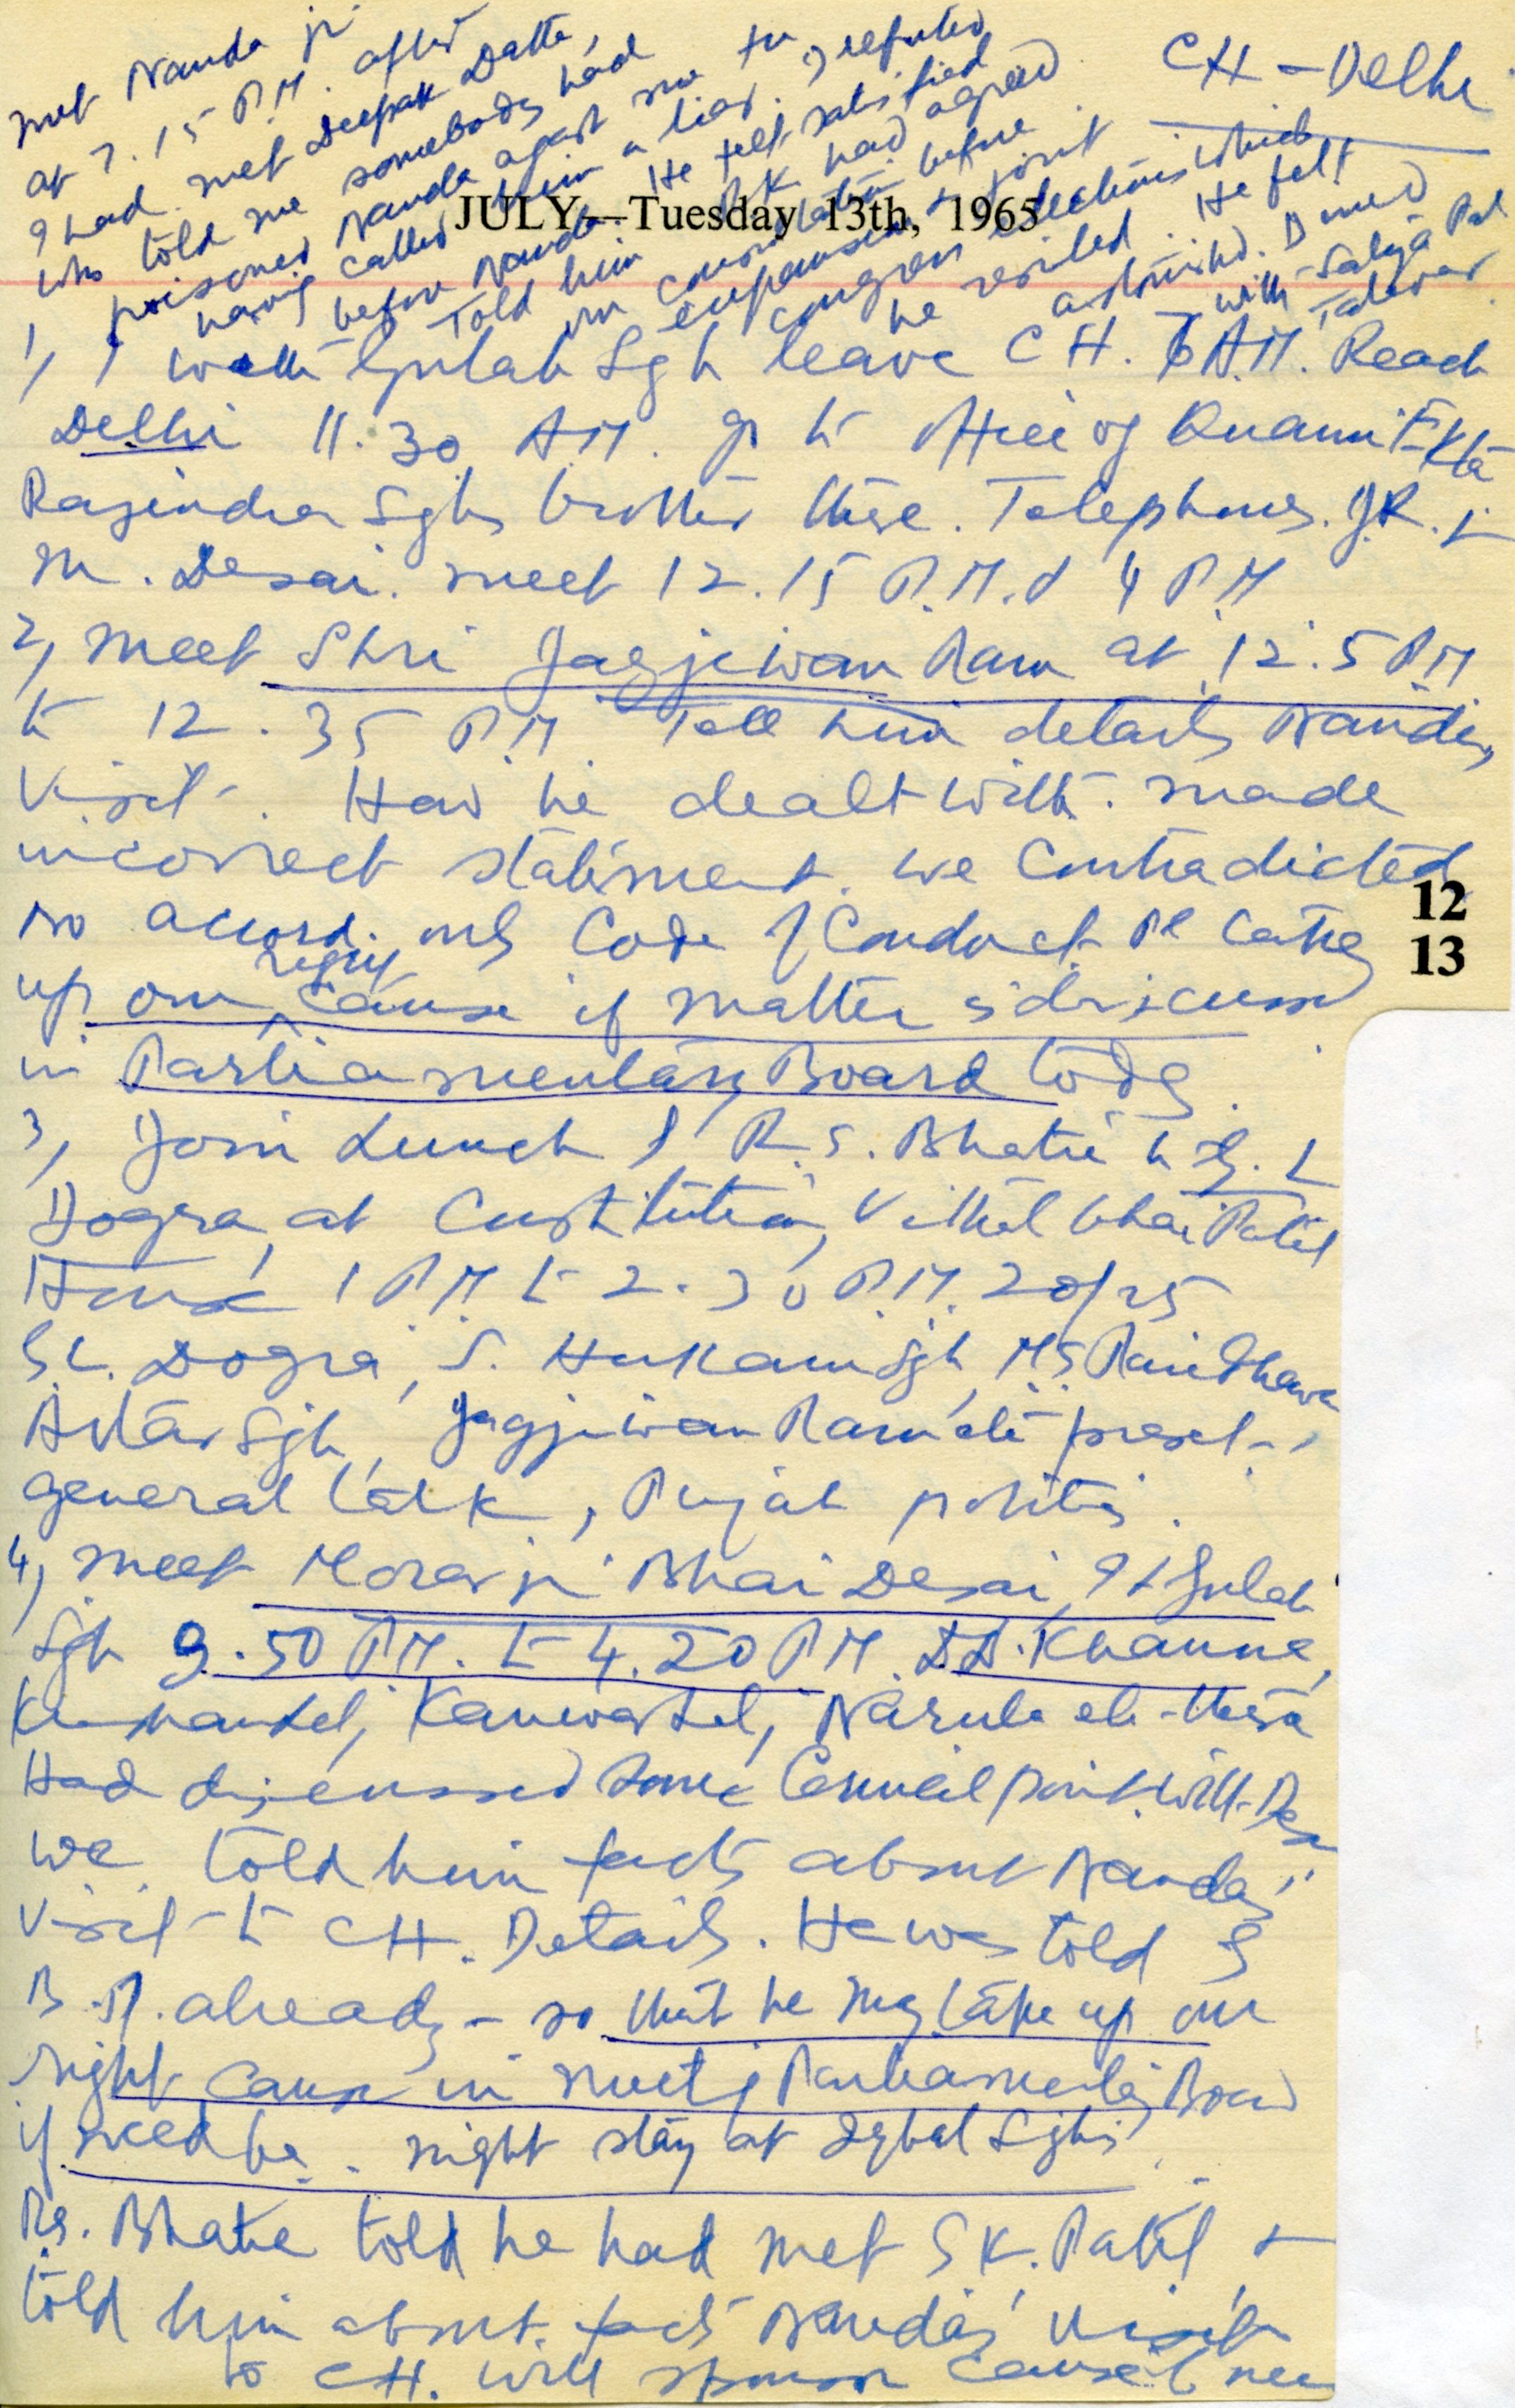 CH - Delhi
met Nanda ji
at 7.15 P.M. after
I had met Deepak Datta,
who told me somebody had
poisoned Nanda agast me tu
having called him a liar. I refuted
before Nanda. He felt satisfied
Told him RK had agreed
on consultation before
expansion & joint
congress elections which
he resiled. He felt
astonished. Dined
with Satya Pal
Talwar
JULY—Tuesday 13th, 1965
1, I with Gulab Sgh leave CH. 6 A.M. Reach
Delhi 11.30 A.M. go to office of Quami Ekta
Rajindra Sghs brother there. Telephones. J.R. &
M. Desai. meet 12.15 P.M. & 4 P.M
2, meet Shri Jagjiwan Ram at 12.5 PM
to 12.35 P.M. Tell him details Nandas
Visit. How he dealt with. made
incorrect statement. we Contradicted
no accord. only Code of Conduct. Pl take
up our right cause if matter is discussed
in Parliamentary Board today.
3, Join Lunch of R.S. Bhatia to G.L
Dogra, at Constitution, Vithal bhai Patel
House 1 P.M to 2.30 P.M. 20/25
G.L. Dogra, S. Hukam Sgh, MS Randhawa
Avtar Sgh, Jagjiwan Ram etc preset.
general talk, Punjab politics.
4, meet Morarji Bhai Desai, I & Gulab
Sgh 3.50 P.M. to 4.20 P.M. D.D. Khanna,
Kanwar Lal, Narula etc there
Had discussed some Council point with Desai
we told him facts about Nandas
Visit to CH. Details. He was told by
B.P. already - so that he may take up our
right cause in meetg Parliamentary Board
if need be. night stay at Iqbal Sghs.
R.S. Bhatia told he had met S.K. Patil &
told him about facts Nandas visit
to CH. Will sponsor cause if nee
12
13